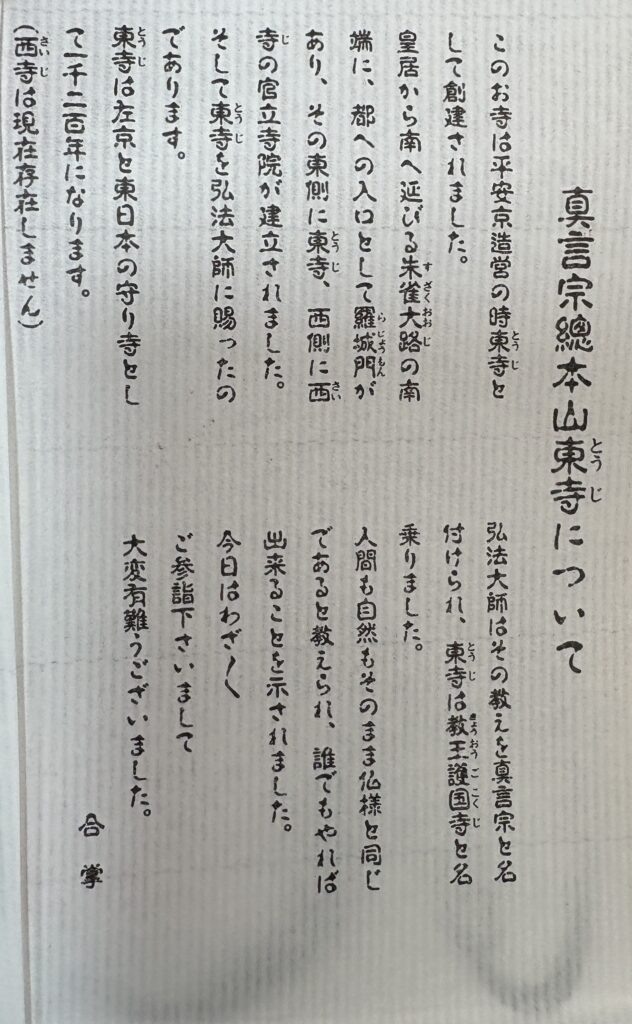 真言宗總本山東寺について
このお寺は平安京造営の時東寺と
して創建されました。
皇居から南へ延びる朱雀大路の南
端に、都への入口として羅城門が
あり、その東側に東寺、西側に西
寺の官立寺院が建立されました。
そして東寺を弘法大師に賜ったの
であります。
東寺は左京と東日本の守り寺とし
て一千二百年になります。
(西寺は現在存在しません)
弘法大師はその教えを真言宗と名
付けられ、東寺は教王護国寺と名
乗りました。
人間も自然もそのまま仏様と同じ
であると教えられ、誰でもやれば
出来ることを示されました。
今日はわざ〳〵
ご参詣下さいまして
大変有難うございました。
合掌